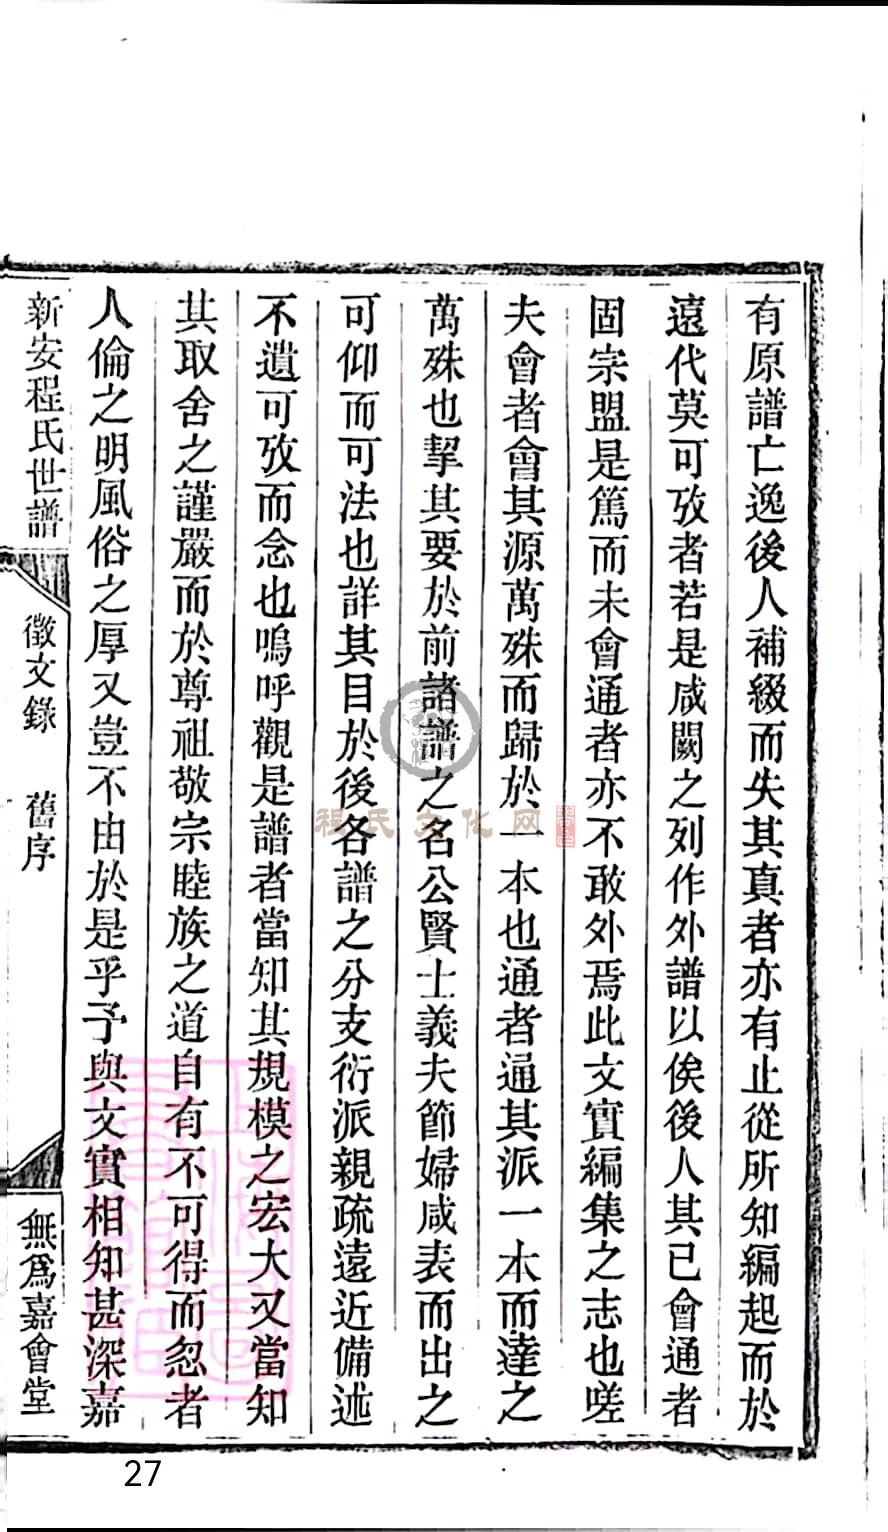 有原譜亡逸後人補綴而失其真者亦有止從所知編起而於
遠代莫可攷者若是咸闕之列作外譜以俟後人其已會通者
固宗盟是篤而未會通者亦不敢外焉此文實編集之志也嗟
夫會者會其源萬殊而歸於一本也通者通其派一本而達之
萬殊也挈其要於前諸譜之名公賢士義夫節婦咸表而出之
可仰而可法也詳其目於後各譜之分支衍派親疏遠近備述
不遺可攷而念也嗚呼觀是譜者當知其規模之宏大又當知
其取舍之謹嚴而於尊祖敬宗睦族之道自有不可得而忽者
人倫之明風俗之厚又豈不由於是乎予與文實相知甚深嘉
新安程氏世譜 徵文錄 舊序 無為嘉會堂
程氏文化网
27